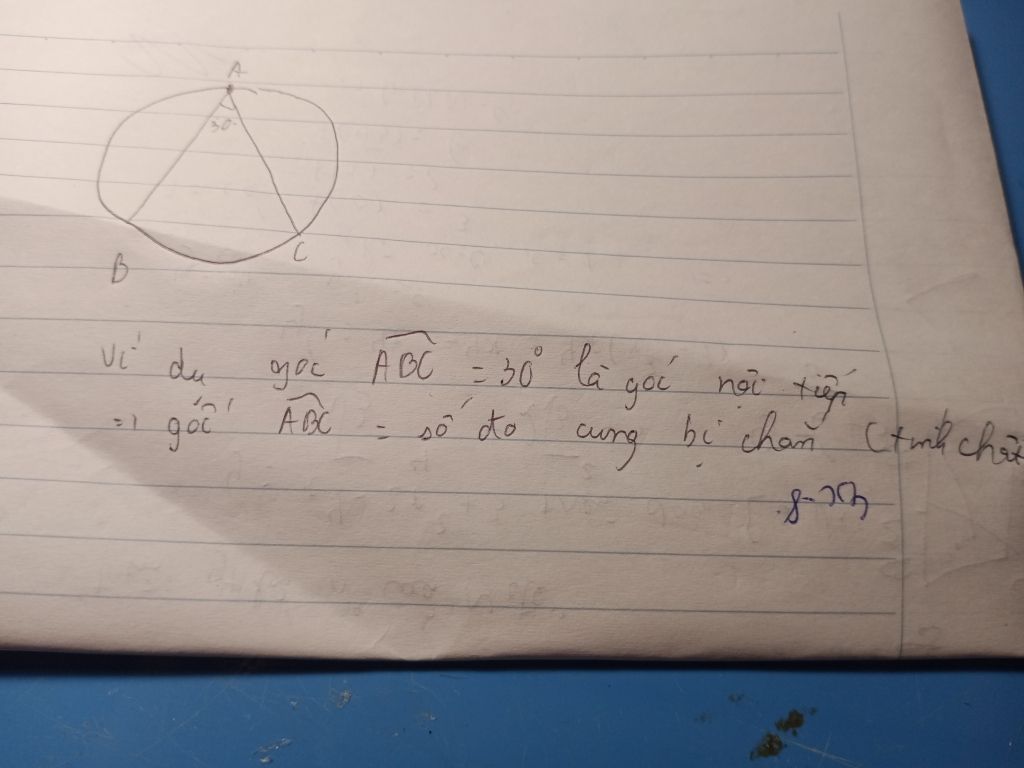 A
30°
B
C
Ví dụ góc ABC = 30° là góc nội tiếp
=> góc ABC = số đo cung bị chắn (tính chất